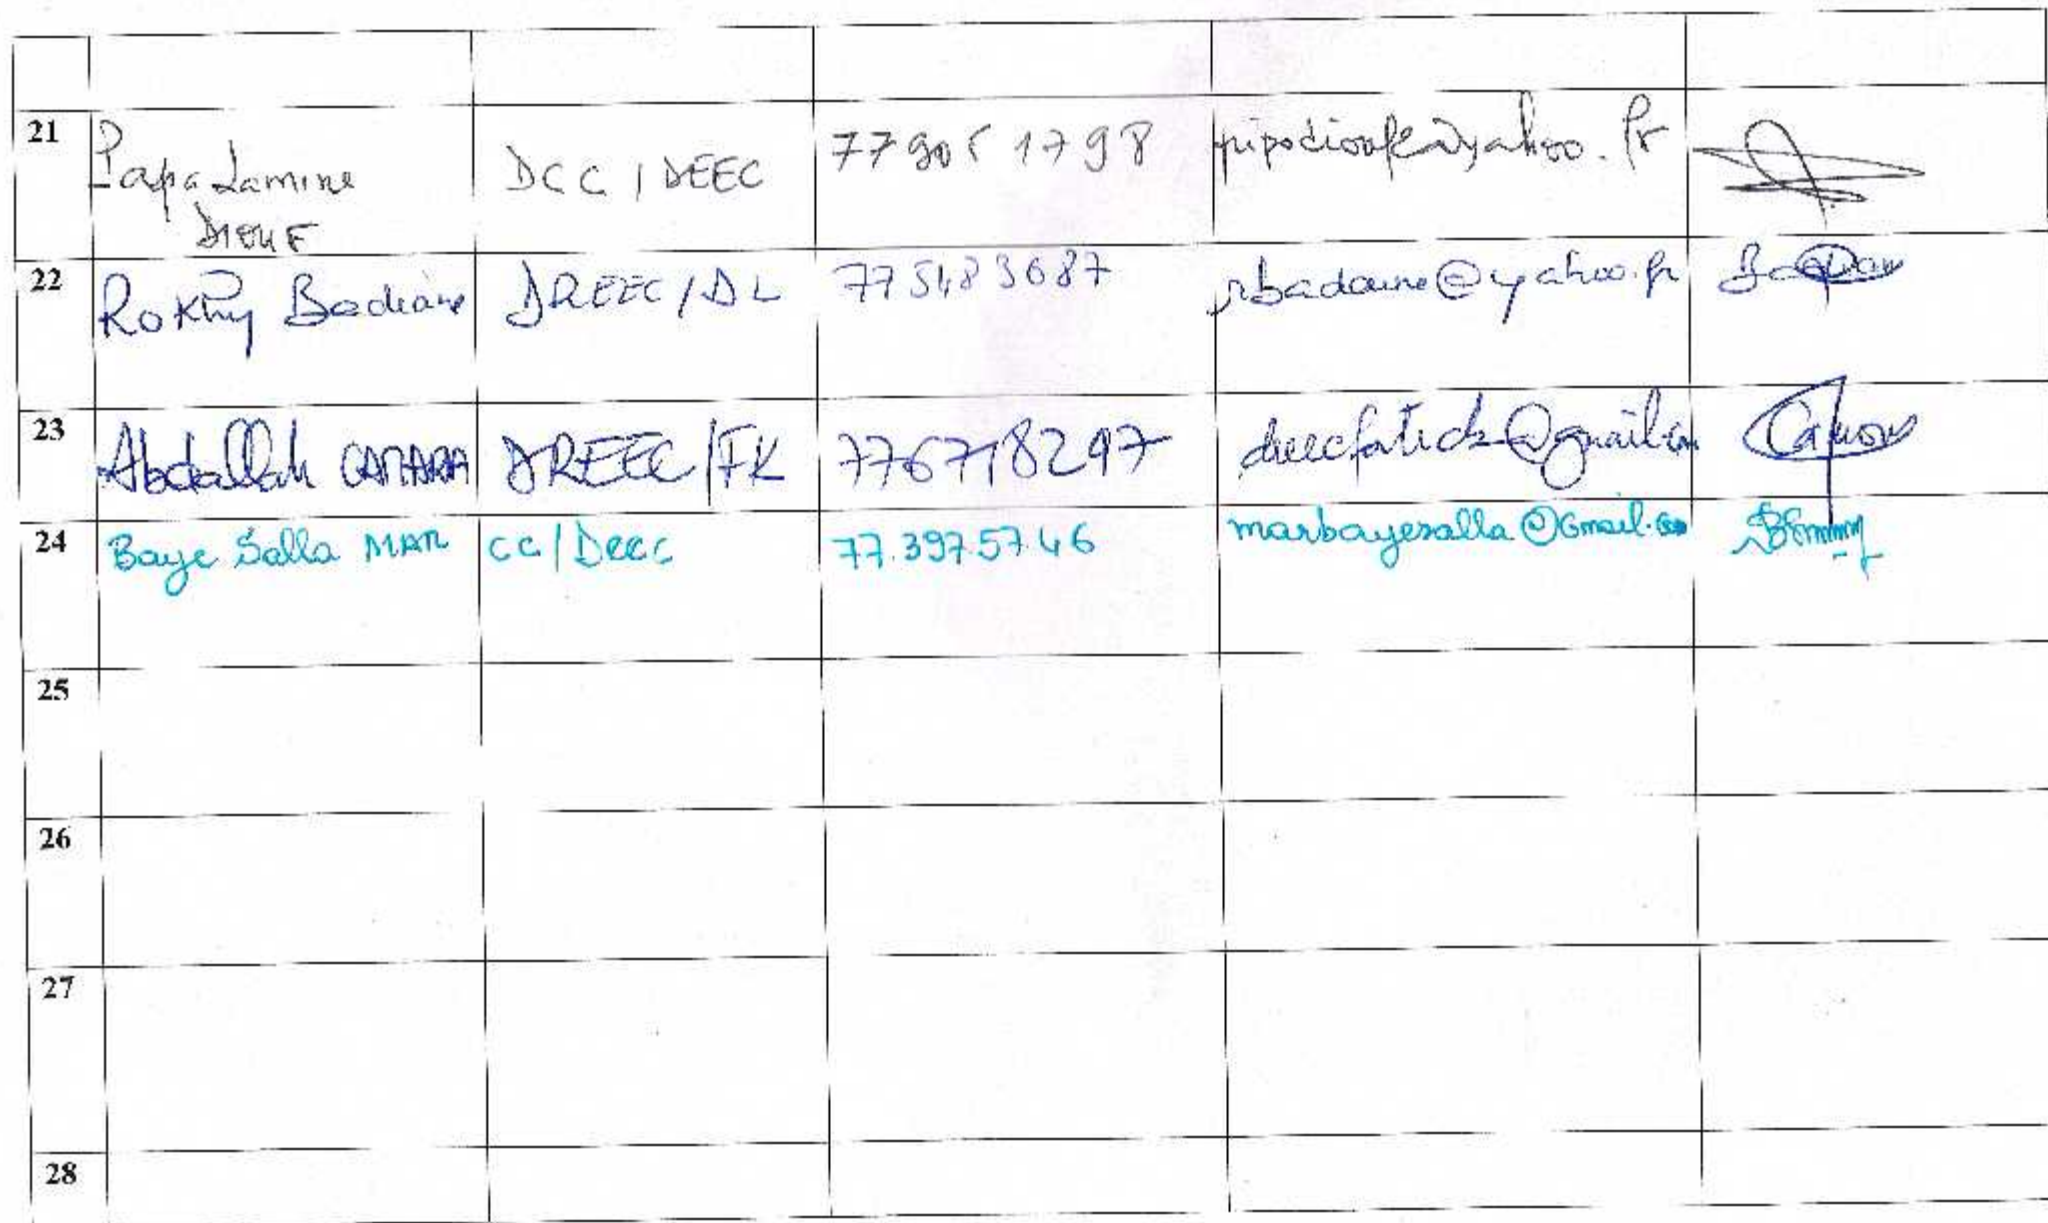 21 Papa Lamine DCC / DEEC 77 905 17 98
DIOUF
22 Rokhy Badiane DREEC/DL 775483687 rbadiane@yahoo.fr
23 Abdallah CAMARA DREEC/FK 776718297 dreecfatick@gmail.com
24 Baye Salla MAR CC/DEEC 77.397.57.46 marbayesalla@Gmail.com
25
26
27
28